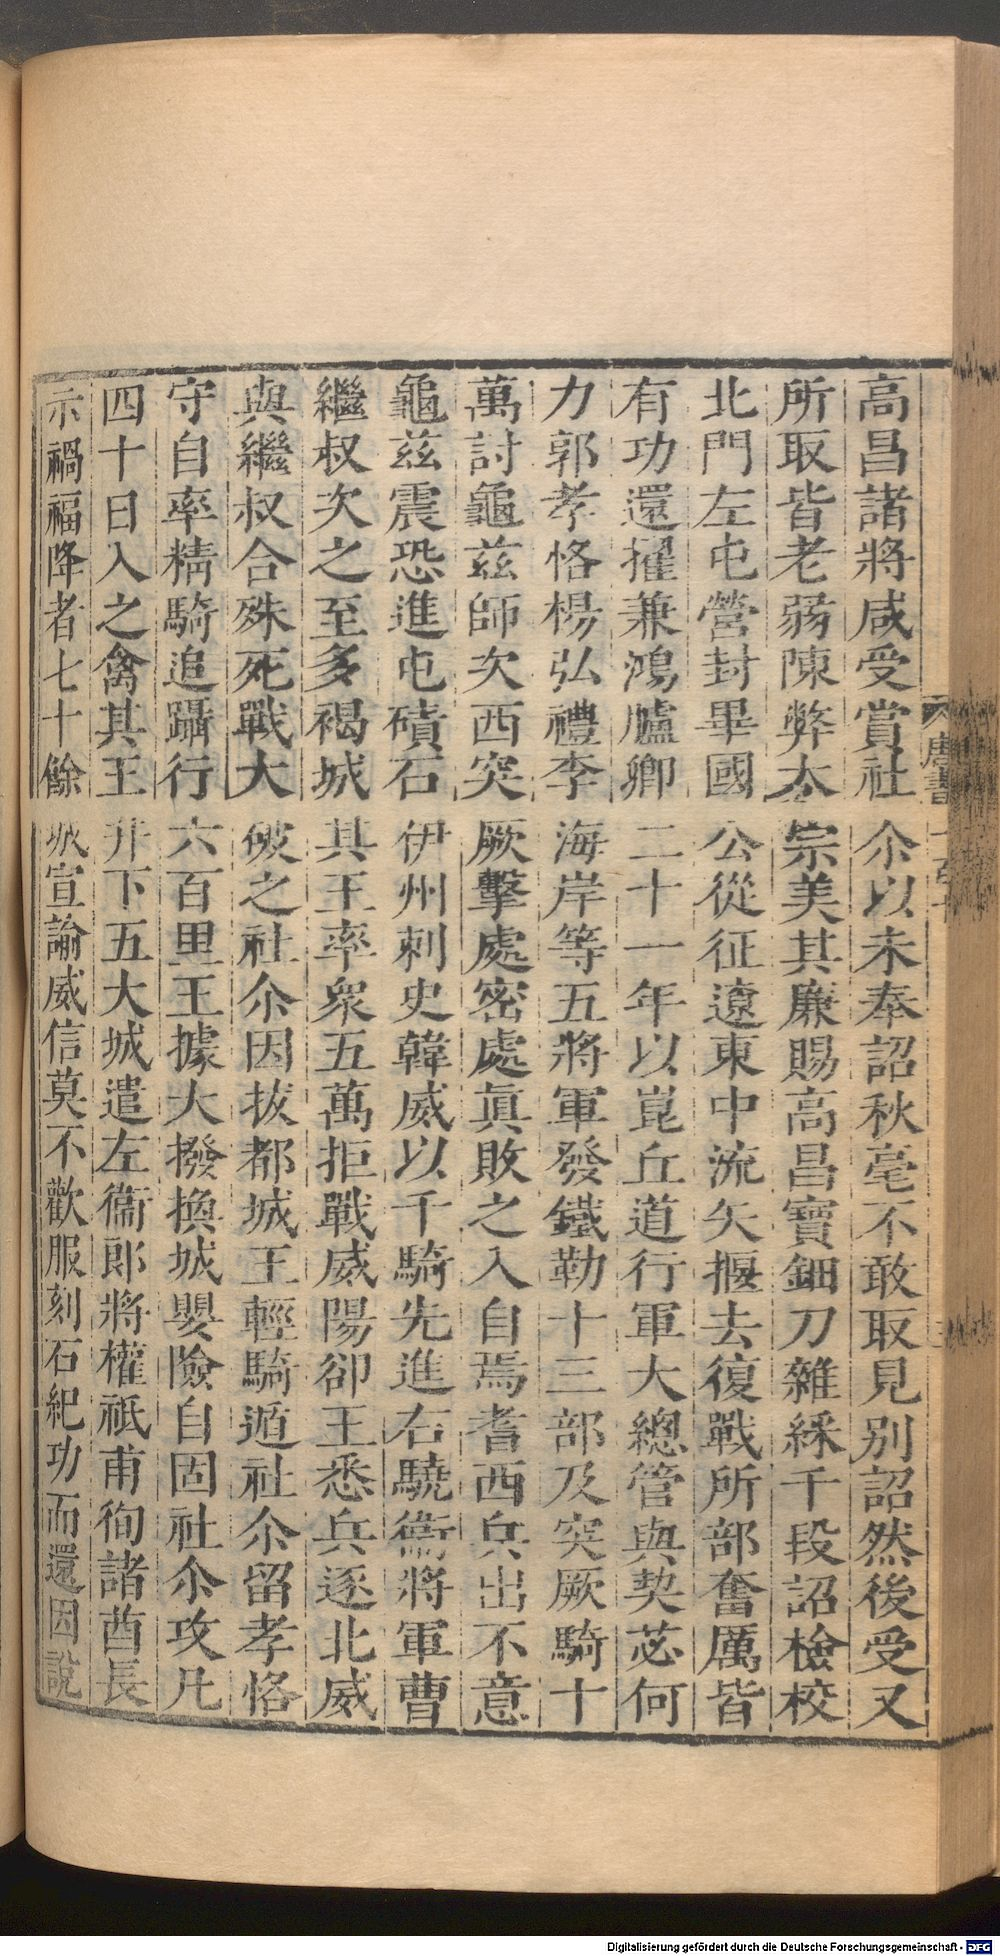 高昌諸將咸受賞社尒以未奉詔秋毫不敢取見别詔然後受又
所取皆老弱陳弊太宗美其廉賜高昌寶鈿刀雜綵千段詔檢校
北門左屯營封畢國公從征遼東中流矢揠去復戰所部奮厲皆
有功還擢兼鴻臚卿二十一年以崑丘道行軍大總管與契苾何
力郭孝恪楊弘禮李海岸等五將軍發鐵勒十三部及突厥騎十
萬討龜兹師次西突厥擊處密處眞敗之入自焉耆西兵出不意
龜兹震恐進屯磧石伊州刺史韓威以千騎先進右驍衞將軍曹
繼叔次之至多褐城其王率衆五萬拒戰威陽卻王悉兵逐北威
與繼叔合殊死戰大破之社尒因拔都城王輕騎遁社尒留孝恪
守自率精騎追躡行六百里王據大撥換城嬰險自固社尒攻凡
四十日入之禽其王并下五大城遣左衞郎將權祇甫徇諸酋長
示禍福降者七十餘城宣諭威信莫不歡服刻石紀功而還因說
唐書
Digitalisierung gefördert durch die Deutsche Forschungsgemeinschaft - DFG